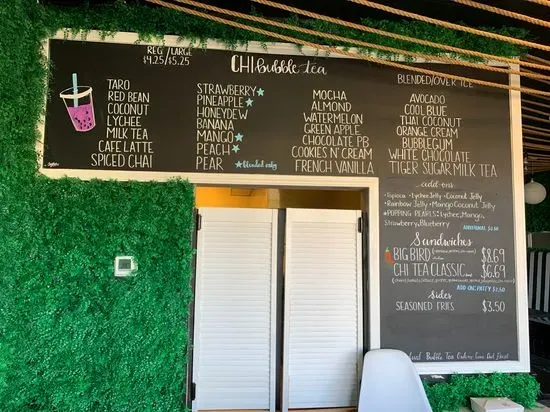 REG / LARGE
$4.25/$5.25
CHI bubble tea
BLENDED/OVER ICE
TARO
RED BEAN
COCONUT
LYCHEE
MILK TEA
CAFE LATTE
SPICED CHAI
STRAWBERRY
PINEAPPLE
HONEYDEW
BANANA
MANGO
PEACH
PEAR
blended only
MOCHA
ALMOND
WATERMELON
GREEN APPLE
CHOCOLATE PB
COOKIES N' CREAM
FRENCH VANILLA
AVOCADO
COOL BLUE
THAI COCONUT
ORANGE CREAM
BUBBLEGUM
WHITE CHOCOLATE
TIGER SUGAR MILK TEA
add-ons
Tapioca Lychee Jelly Coconut Jelly
Rainbow Jelly Mango Coconut Jelly
POPPING PEARLS: Lychee, Mango,
Strawberry, Blueberry
ADDITIONAL $0.50
Sandwiches
BIG BIRD $8.69
CHI TEA CLASSIC $6.69
ADD CHX PATTY $2.50
Sides
SEASONED FRIES $3.50
Bubble Tea Orders